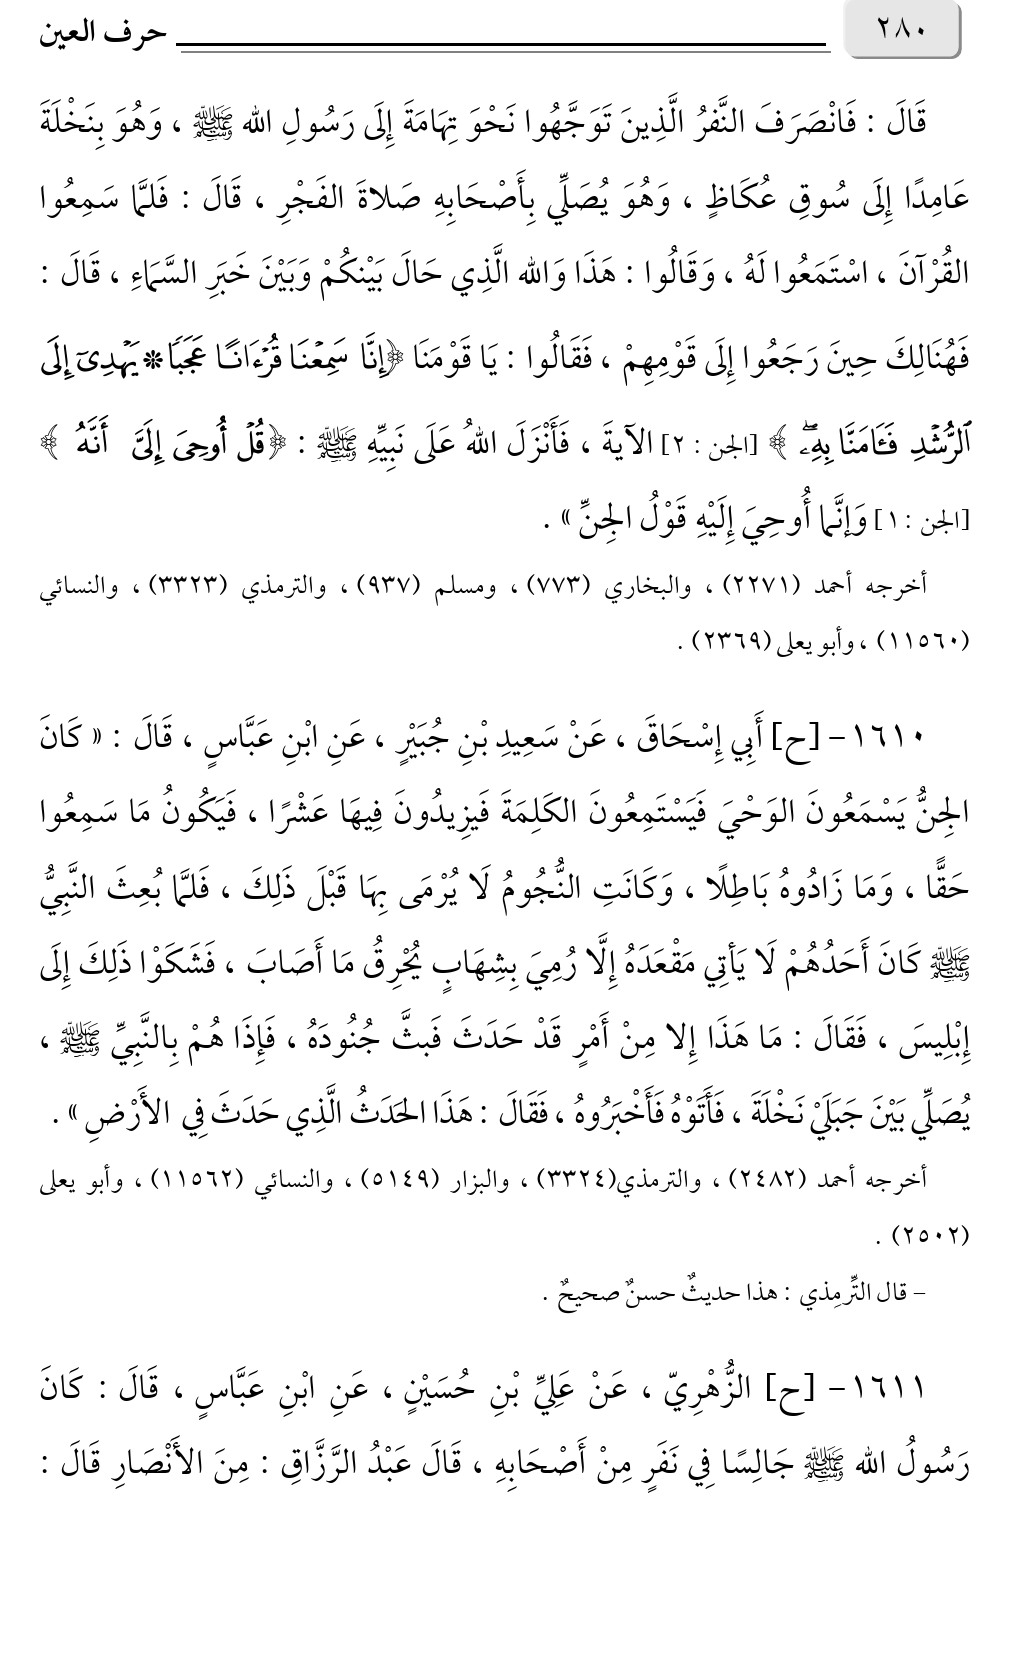 ٢٨٠ حرف العين
قَالَ : فَانْصَرَفَ النَّفَرُ الَّذِينَ تَوَجَّهُوا نَحْوَ تِهَامَةَ إِلَى رَسُولِ الله ﷺ ، وَهُوَ بِنَخْلَةَ
عَامِدًا إِلَى سُوقِ عُكَاظٍ ، وَهُوَ يُصَلِّي بِأَصْحَابِهِ صَلاةَ الفَجْرِ ، قَالَ : فَلمَّا سَمِعُوا
القُرْآنَ ، اسْتَمَعُوا لَهُ ، وَقَالُوا : هَذَا وَالله الَّذِي حَالَ بَيْنكُمْ وَبَيْنَ خَبَرِ السَّمَاءِ ، قَالَ :
فَهُنَالِكَ حِينَ رَجَعُوا إِلَى قَوْمِهِمْ ، فَقَالُوا : يَا قَوْمَنَا ﴿إِنَّا سَمِعْنَا قُرْءَانًا عَجَبًا * يَهْدِىٓ إِلَى
ٱلرُّشْدِ فَـَٔامَنَّا بِهِۦ ۖ ﴾ [الجن : ٢] الآيةَ ، فَأَنْزَلَ اللهُ عَلَى نَبِيِّهِ ﷺ : ﴿قُلْ أُوحِىَ إِلَىَّ أَنَّهُ ﴾
[الجن : ١] وَإنَّما أُوحِيَ إِلَيْهِ قَوْلُ الجِنِّ » .
أخرجه أحمد (٢٢٧١) ، والبخاري (٧٧٣) ، ومسلم (٩٣٧) ، والترمذي (٣٣٢٣) ، والنسائي
(١١٥٦٠) ، وأبو يعلى (٢٣٦٩) .
١٦١٠- [ح] أَبِي إِسْحَاقَ ، عَنْ سَعِيدِ بْنِ جُبَيْرٍ ، عَنِ ابْنِ عَبَّاسٍ ، قَالَ : « كَانَ
الجِنُّ يَسْمَعُونَ الوَحْيَ فَيَسْتَمِعُونَ الكَلِمَةَ فَيَزِيدُونَ فِيهَا عَشْرًا ، فَيَكُونُ مَا سَمِعُوا
حَقًّا ، وَمَا زَادُوهُ بَاطِلًا ، وَكَانَتِ النُّجُومُ لَا يُرْمَى بِهَا قَبْلَ ذَلِكَ ، فَلمَّا بُعِثَ النَّبِيُّ
ﷺ كَانَ أَحَدُهُمْ لَا يَأتِي مَقْعَدَهُ إِلَّا رُمِيَ بِشِهَابٍ يُحْرِقُ مَا أَصَابَ ، فَشَكَوْا ذَلِكَ إِلَى
إِبْلِيسَ ، فَقَالَ : مَا هَذَا إِلا مِنْ أَمْرٍ قَدْ حَدَثَ فَبثَّ جُنُودَهُ ، فَإِذَا هُمْ بِالنَّبِيِّ ﷺ ،
يُصَلِّي بَيْنَ جَبَلَيْ نَخْلَةَ ، فَأَتَوْهُ فَأَخْبَرُوهُ ، فَقَالَ : هَذَا الحَدَثُ الَّذِي حَدَثَ فِي الأَرْضِ » .
أخرجه أحمد (٢٤٨٢) ، والترمذي(٣٣٢٤) ، والبزار (٥١٤٩) ، والنسائي (١١٥٦٢) ، وأبو يعلى
(٢٥٠٢) .
– قال التِّرمِذي : هذا حديثٌ حسنٌ صحيحٌ .
١٦١١- [ح] الزُّهْرِيّ ، عَنْ عَلِيِّ بْنِ حُسَيْنٍ ، عَنِ ابْنِ عَبَّاسٍ ، قَالَ : كَانَ
رَسُولُ الله ﷺ جَالِسًا فِي نَفَرٍ مِنْ أَصْحَابِهِ ، قَالَ عَبْدُ الرَّزَّاقِ : مِنَ الأَنْصَارِ قَالَ :